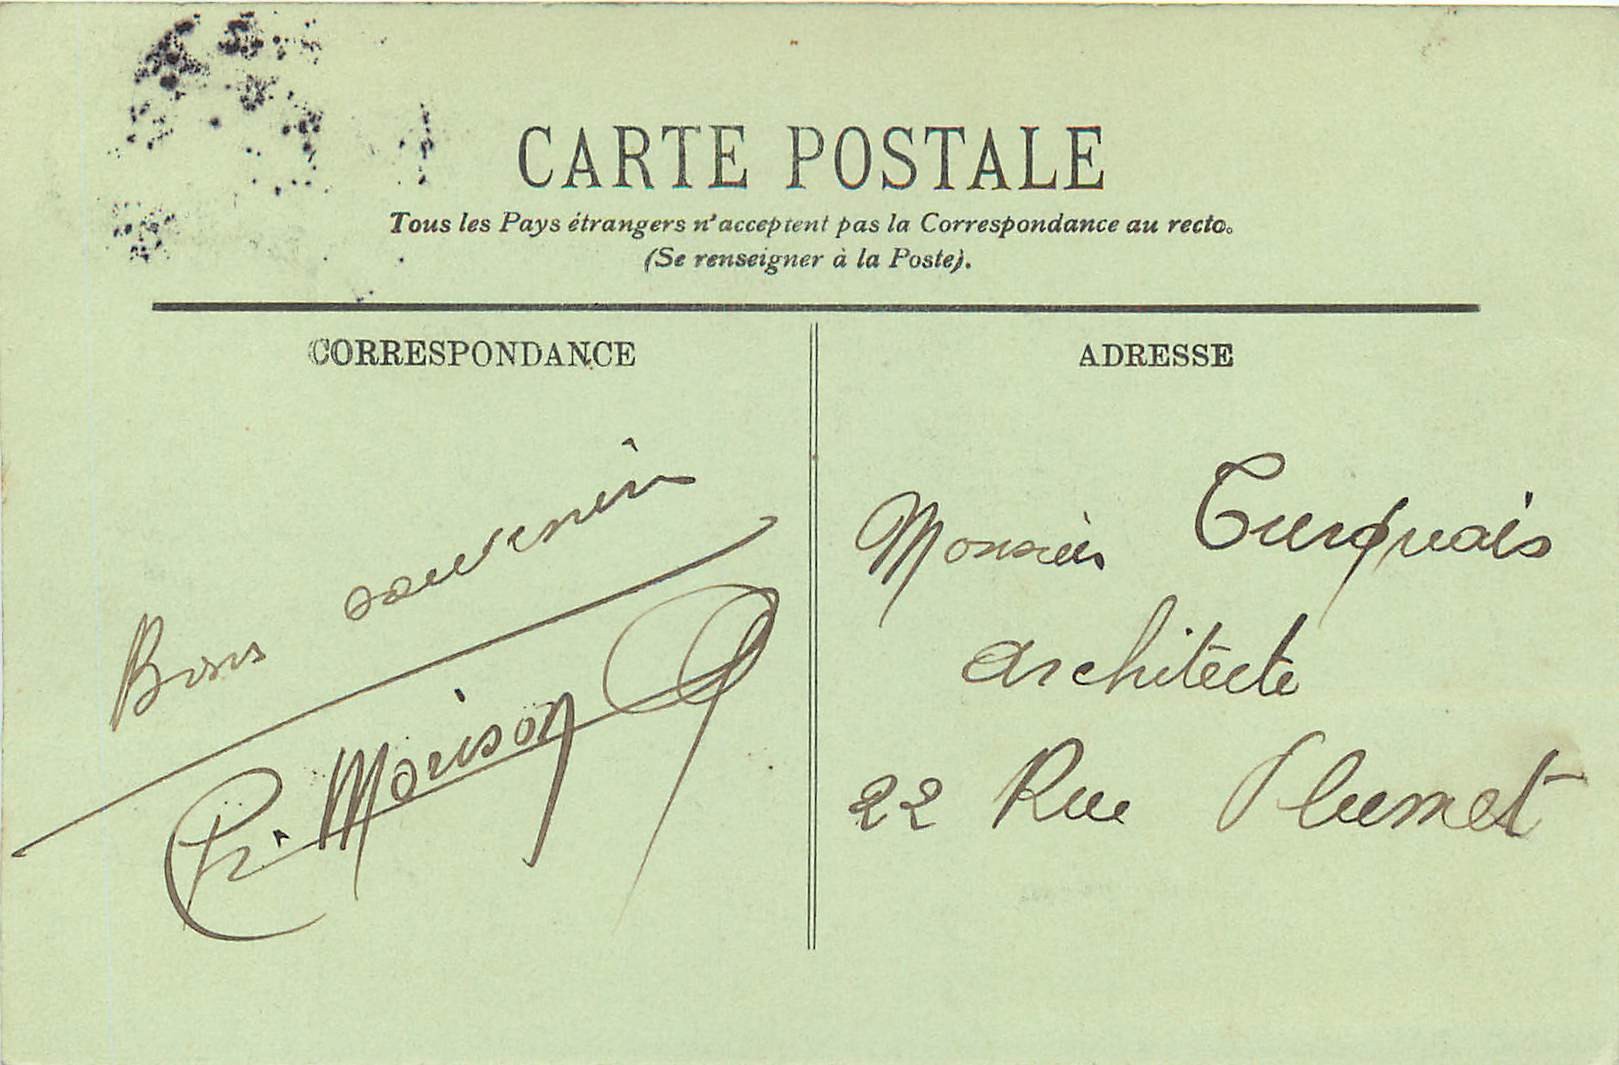 CARTE POSTALE
Tous les Pays étrangers n'acceptent pas la Correspondance au recto.
(Se renseigner à la Poste).
CORRESPONDANCE
Bons souvenirs
Morison
ADRESSE
Monsieur Turquais
Architecte
22 Rue Plumet